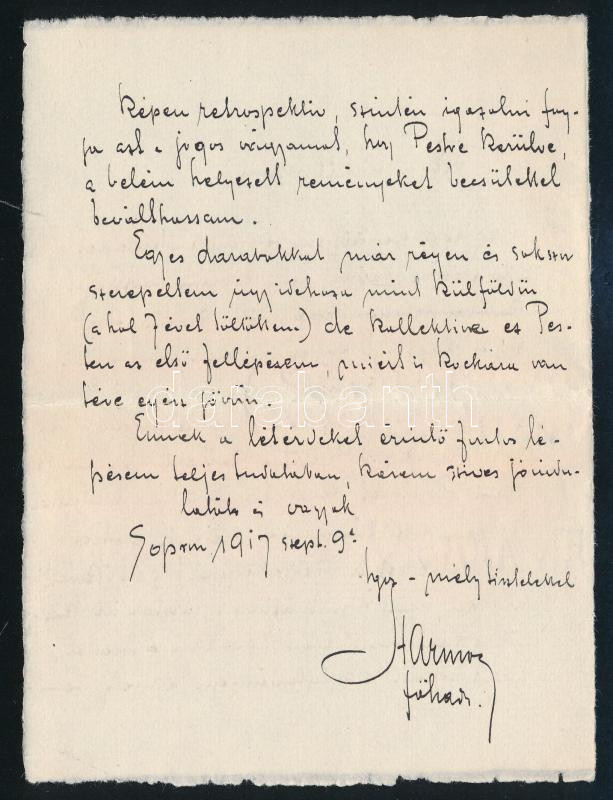 képen retrospektiv, szintén igazolni fog-
ja azt a jogos vágyamat, hogy Pestre kerülve,
a belém helyezett reményeket becsülettel
beválthassam.
Egyes darabokkal már régen és sokszor
szerepeltem úgy idehaza mint külföldön
(ahol 7 évet töltöttem) de kollektive ez Pes-
ten az első fellépésem, miért is kockára van
téve egész jövőm.
Ennek a létérdeket érintő fontos lé-
pésem teljes tudatában, kérem szives jóindu-
latát és vagyok
Sopron 1917 szept. 9é
igaz - mély tisztelettel
Harmos
főhad.
darabanth